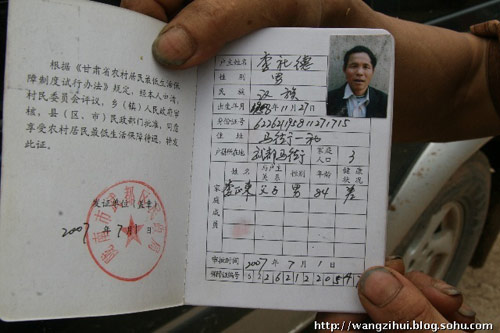 根据《甘肃省农村居民最低生活保
障制度试行办法》规定，经本人申请，
村民委员会评议，乡（镇）人民政府审
核，县（区、市）民政部门批准，同意
享受农村居民最低生活保障待遇，特发
此证。
发证单位（盖章）
2007年7月1日
户主姓名 李社德
性别 男
民族 汉族
出生年月 年11月27日
身份证号
住址 马街
户籍所在地 武都马街 家庭人口 3
家庭成员 姓名 与户主关系 性别 年龄 健康状况
父子 男 84 差
审批时间 2007年7月1日
保障证编号
http://wangzihui.blog.sohu.com